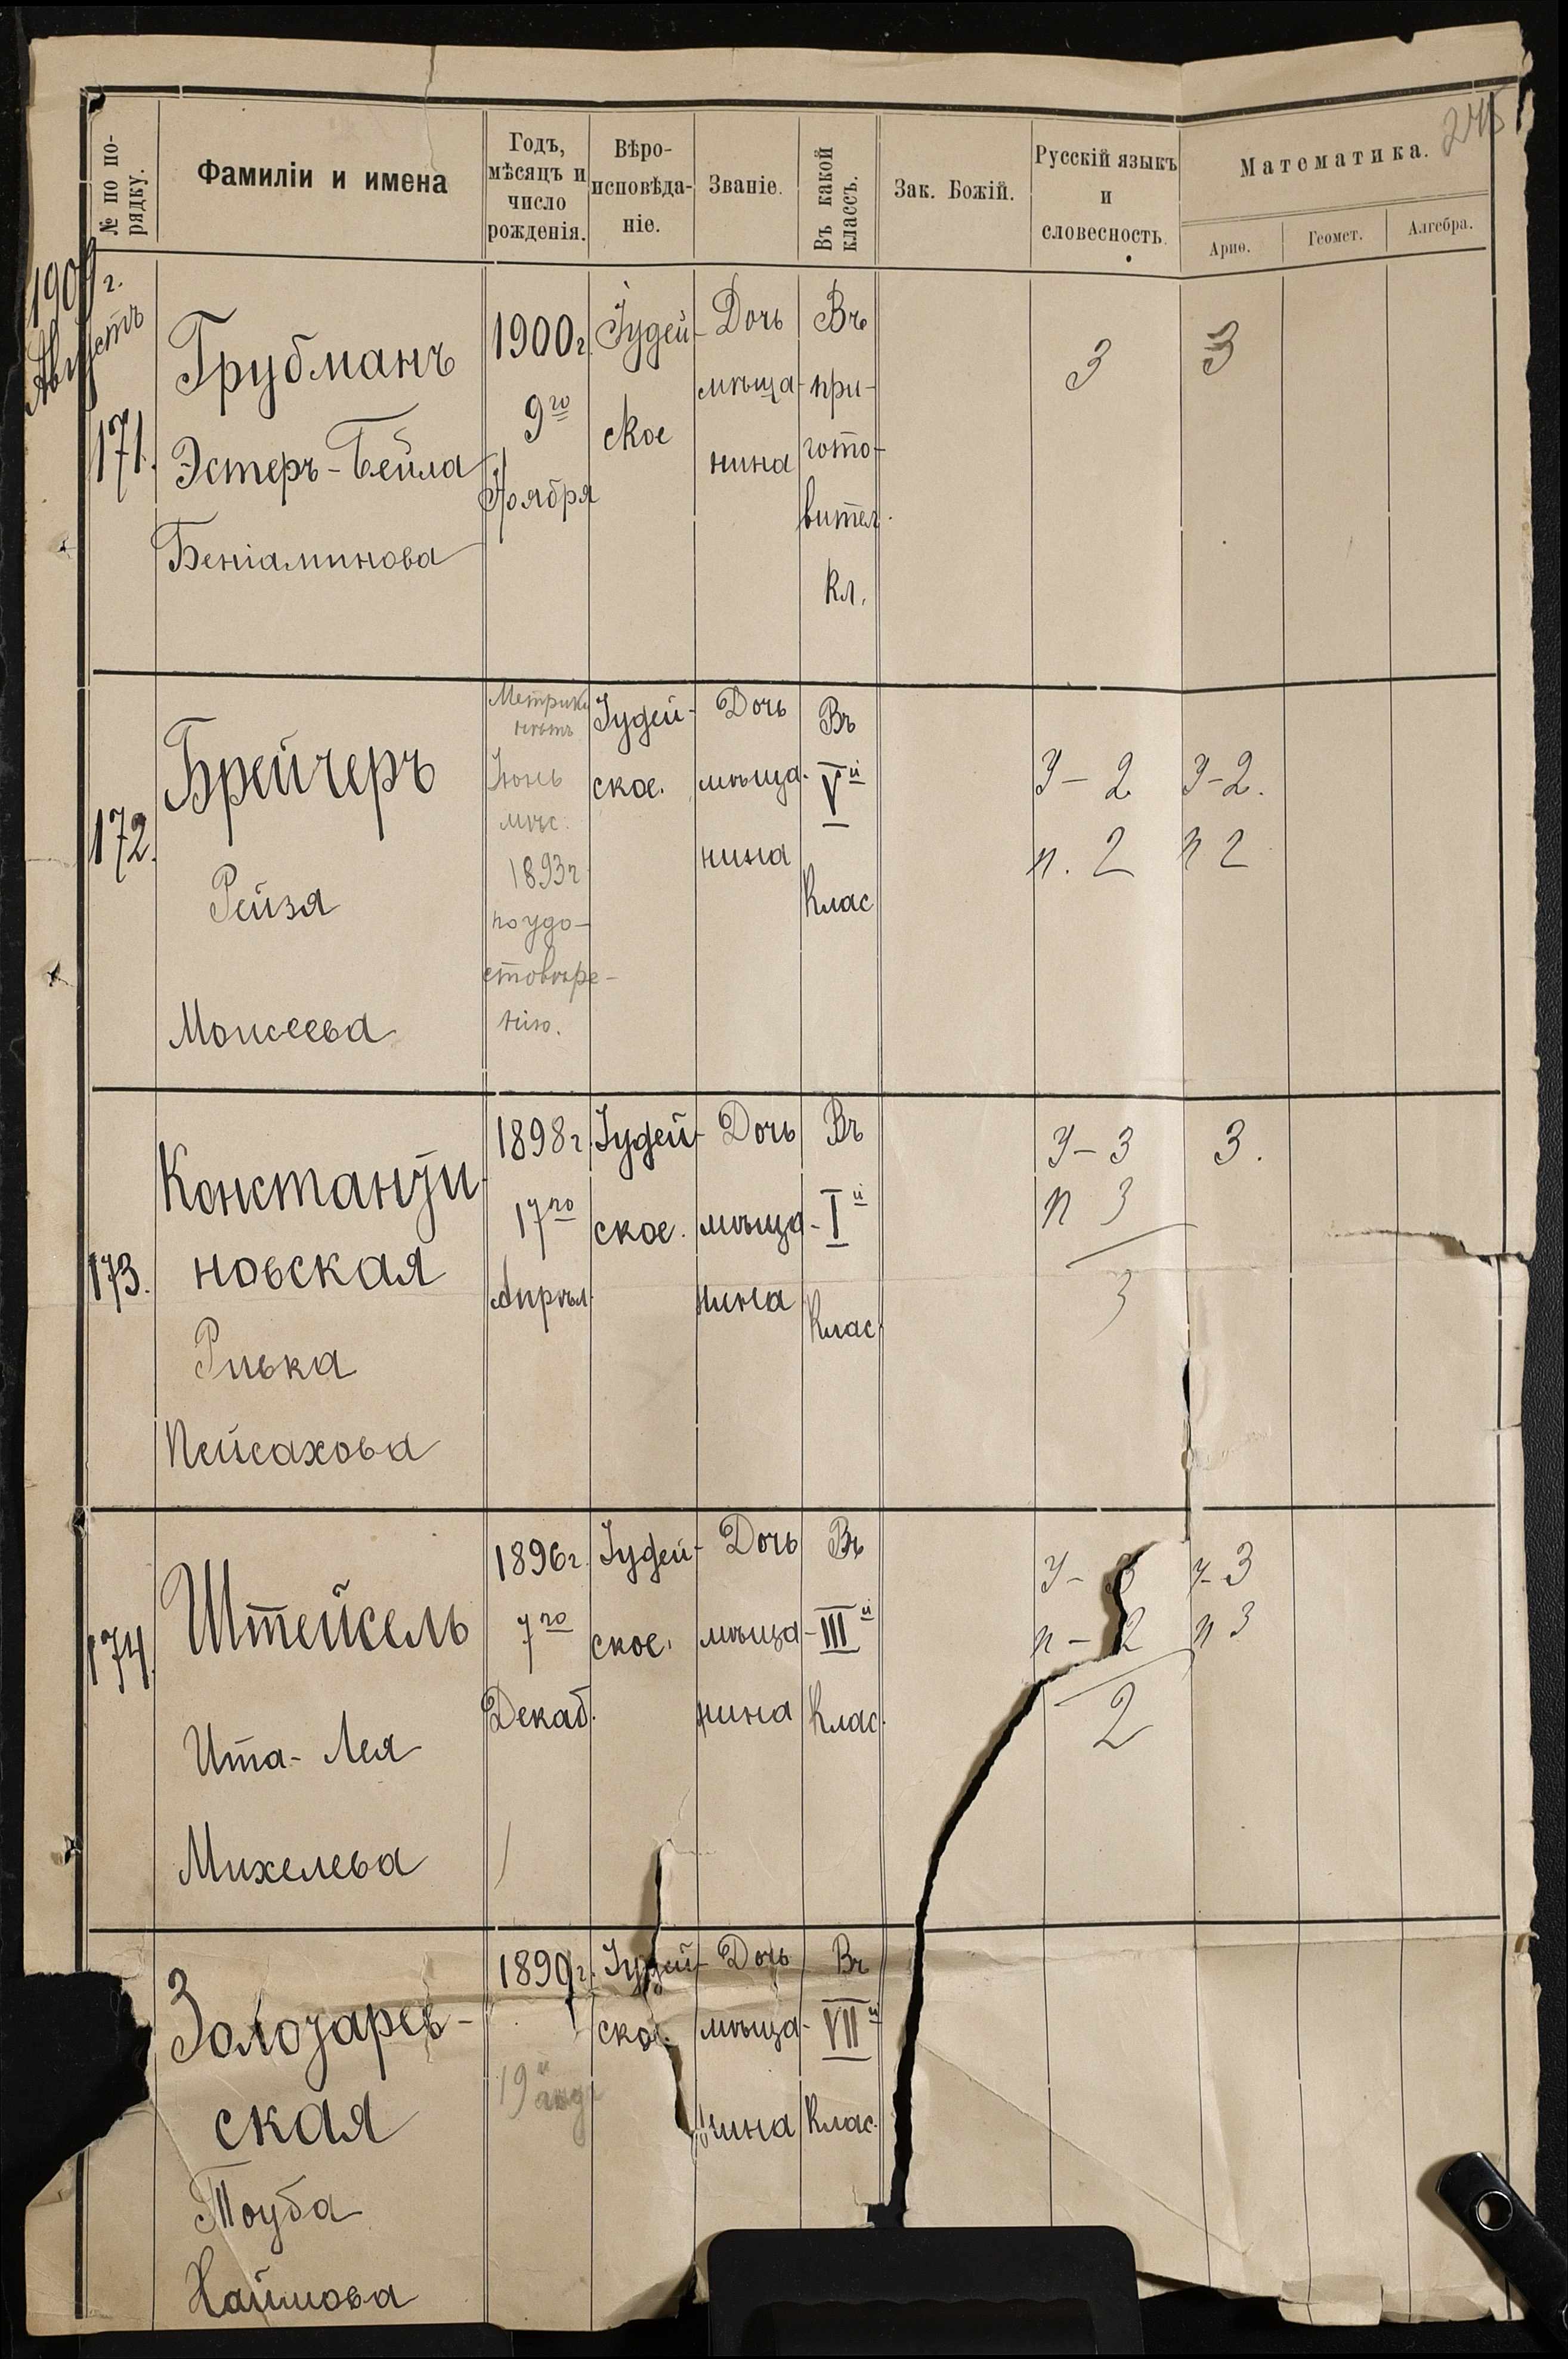 245
№ по по-
рядку.
Фамиліи и имена
Годъ,
мѣсяцъ и
число
рожденія.
Вѣро-
исповѣда-
ніе.
Званіе.
Въ какой
классъ.
Зак. Божій.
Русскій языкъ
и
словесность.
Математика.
Ариѳ.
Геомет.
Алгебра.
1909 г.
Августъ
171.
Грубманъ
Эстеръ-Бейла
Беніаминова
1900 г.
9го
Ноября
Іудей-
ское
Дочь
мѣща-
нина
Въ
при-
гото-
вител.
кл.
3
3
172.
Брейчеръ
Рейзя
Моисеева
Метрики
нѣтъ
Іюнь
мѣс.
1893 г
по удо-
стовѣре-
нію.
Іудей-
ское.
Дочь
мѣща-
нина
Въ
Vй
клас
У - 2
п. 2
У-2.
п 2
173.
Константи-
новская
Ривка
Пейсахова
1898 г.
17го
Апрѣл.
Іудей-
ское.
Дочь
мѣща-
нина
Въ
Iй
клас.
У - 3
п 3
3
3.
174.
Штейсель
Ита-Лея
Михелева
1896 г.
7го
Декаб.
Іудей-
ское.
Дочь
мѣща-
нина
Въ
IIIй
клас.
У -
п - 2
2
У-3
п 3
Золотарев-
ская
Тоуба
Хаимова
1890 г.
19
Іудей-
ское.
Дочь
мѣща-
нина
Въ
VIIй
клас.